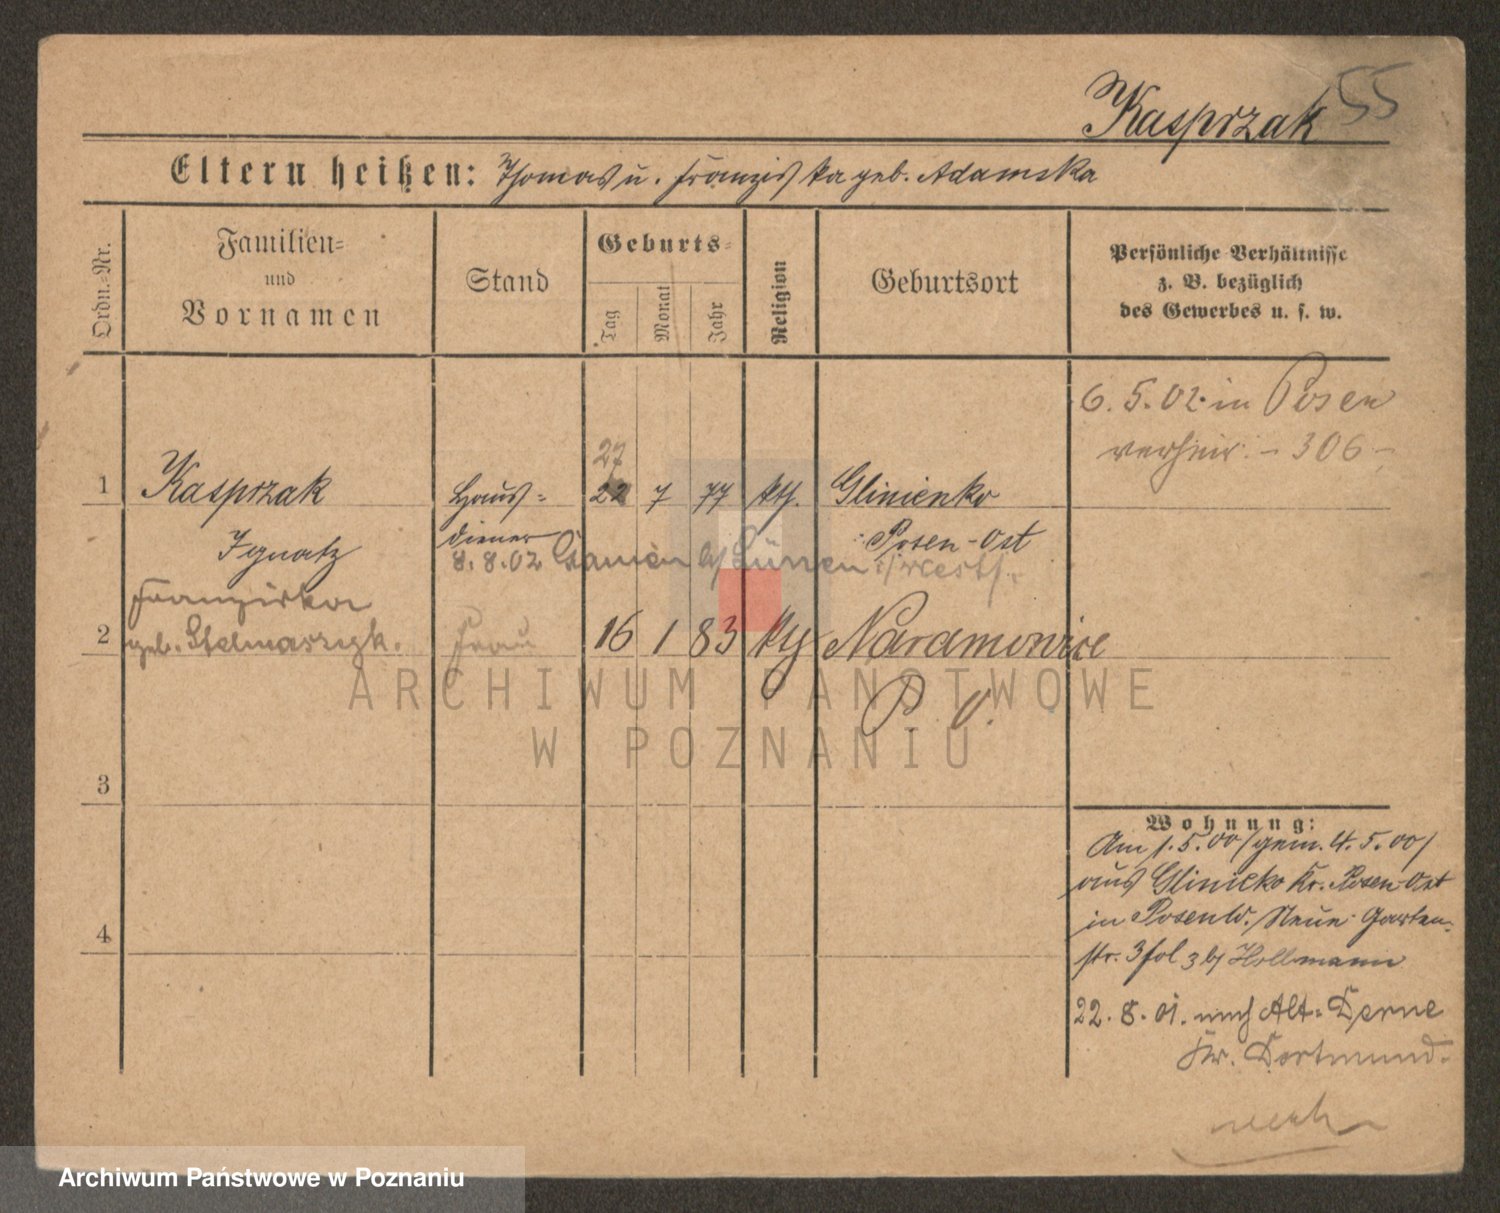 55
Kasprzak
Eltern heißen: Thomas u. Franziska geb. Adamska
Ordn.-Nr.
Familien-
und
Vornamen
Stand
Geburts-
Tag
Monat
Jahr
Religion
Geburtsort
Persönliche Verhältnisse
z. B. bezüglich
des Gewerbes u. s. w.
6. 5. 02. in Posen
verheir. - 306 -
27
1 Kasprzak Haus- 22 7 77 kth. Glinienko
Ignatz diener Posen-Ost
8. 8. 02 b/ Lünen i/Westf.
Franziska
2 geb. Stelmaszyk. Frau 16 1 83 kth Naramowice
P. O.
3
4
ARCHIWUM PAŃSTWOWE
W POZNANIU
Wohnung:
Am 1. 5. 00/gem. 4. 5. 00/
aus Glinieko Kr. Posen-Ost
in Posen W. Neue Garten-
str. 3 fol 3 b/ Hollmann
22. 8. 01. nach Alt-Derne
Kr. Dortmund.
Archiwum Państwowe w Poznaniu